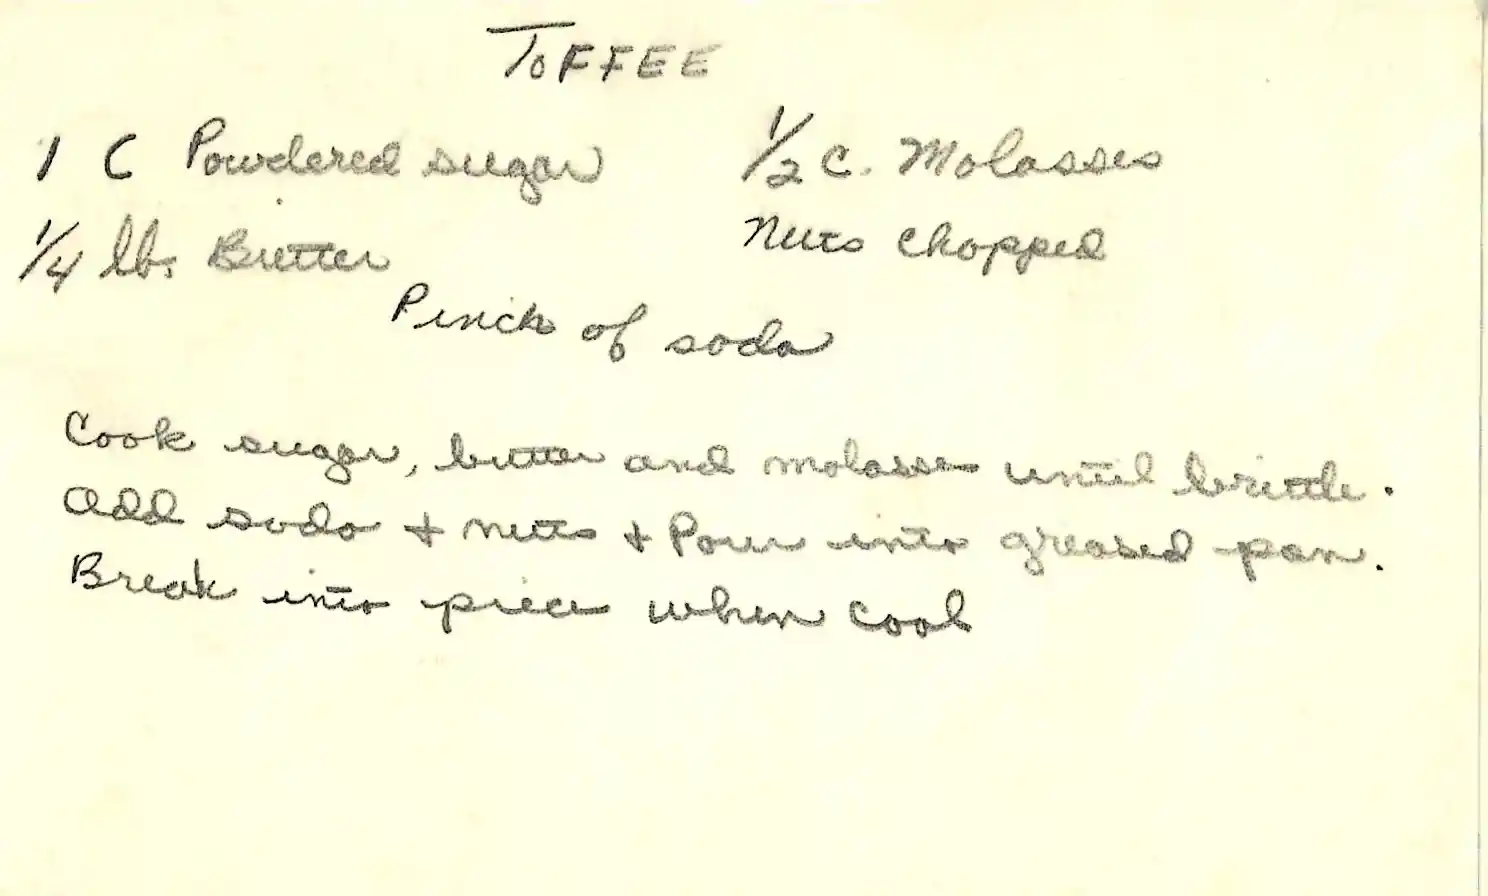 TOFFEE
1 C Powdered sugar 1/2 c. Molasses
1/4 lb. Butter Nuts chopped
Pinch of soda
Cook sugar, butter and molasses until brittle.
Add soda + nuts + Pour into greased pan.
Break into pieces when cool